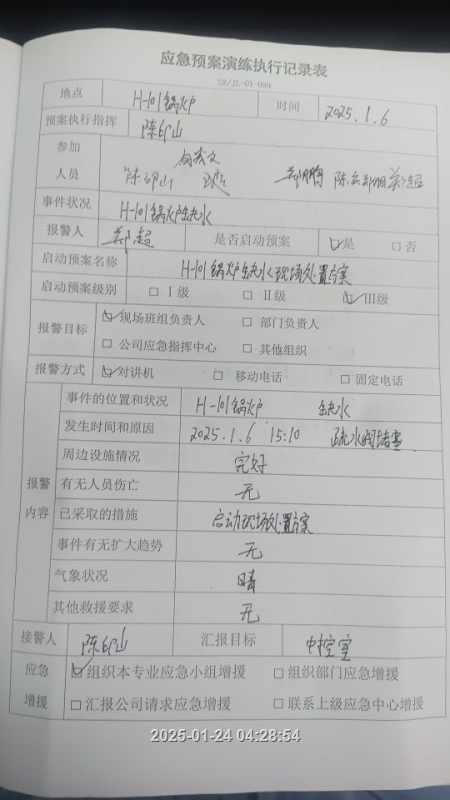 应急预案演练执行记录表
SR/JL-01-099
地点 H-101锅炉 时间 2025.1.6
预案执行指挥 陈印山
参加人员
陈印山
事件状况 H-101锅炉缺水
报警人 郑超 是否启动预案 ☑是 □否
启动预案名称 H-101锅炉缺水现场处置方案
启动预案级别 □Ⅰ级 □Ⅱ级 ☑Ⅲ级
报警目标 ☑现场班组负责人 □部门负责人
□公司应急指挥中心 □其他组织
报警方式 ☑对讲机 □移动电话 □固定电话
报警内容
事件的位置和状况 H-101锅炉 缺水
发生时间和原因 2025.1.6 15:10 疏水阀堵塞
周边设施情况 完好
有无人员伤亡 无
已采取的措施 启动现场处置方案
事件有无扩大趋势 无
气象状况 晴
其他救援要求 无
接警人 陈印山 汇报目标 中控室
应急增援
☑组织本专业应急小组增援 □组织部门应急增援
□汇报公司请求应急增援 □联系上级应急中心增援
2025-01-24 04:28:54